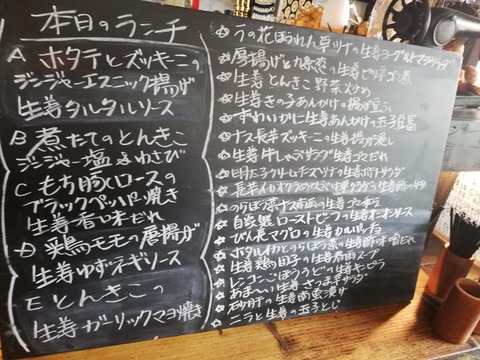 本日のランチ
A ホタテとズッキーニの
ジンジャーエスニック揚げ
生姜タルタルソース
B 煮たてのとんきこ
ジンジャー塩&わさび
C もち豚ロースの
ブラックペッパー焼き
生姜香味だれ
D 鶏モモの唐揚げ
生姜ゆずネギソース
E とんきこの
生姜ガーリックマヨ焼き
唐揚げと九条葱の生姜
生姜とんきこ野菜炒め
生姜きの子あんかけの
ずわいかに生姜あんかけの玉子豆腐
ナス長芋ズッキーニの生姜揚げ浸し
生姜牛しゃぶサラダ生姜ゴマだれ
明太子クリームチーズ生姜ポテトサラダ
のらぼう菜の生姜ゴマ和え
自家製ローストビーフの生姜オニオンソース
びん長マグロの生姜カルパッチョ
ホタルイカとのらぼう菜の生姜酢味噌だれ
生姜鶏団子の生姜春雨スープ
レンコンごぼううどの生姜キンピラ
あま〜い生姜さつま芋サラダ
砂肝の生姜南蛮漬け
ニラと生姜の玉子とじ